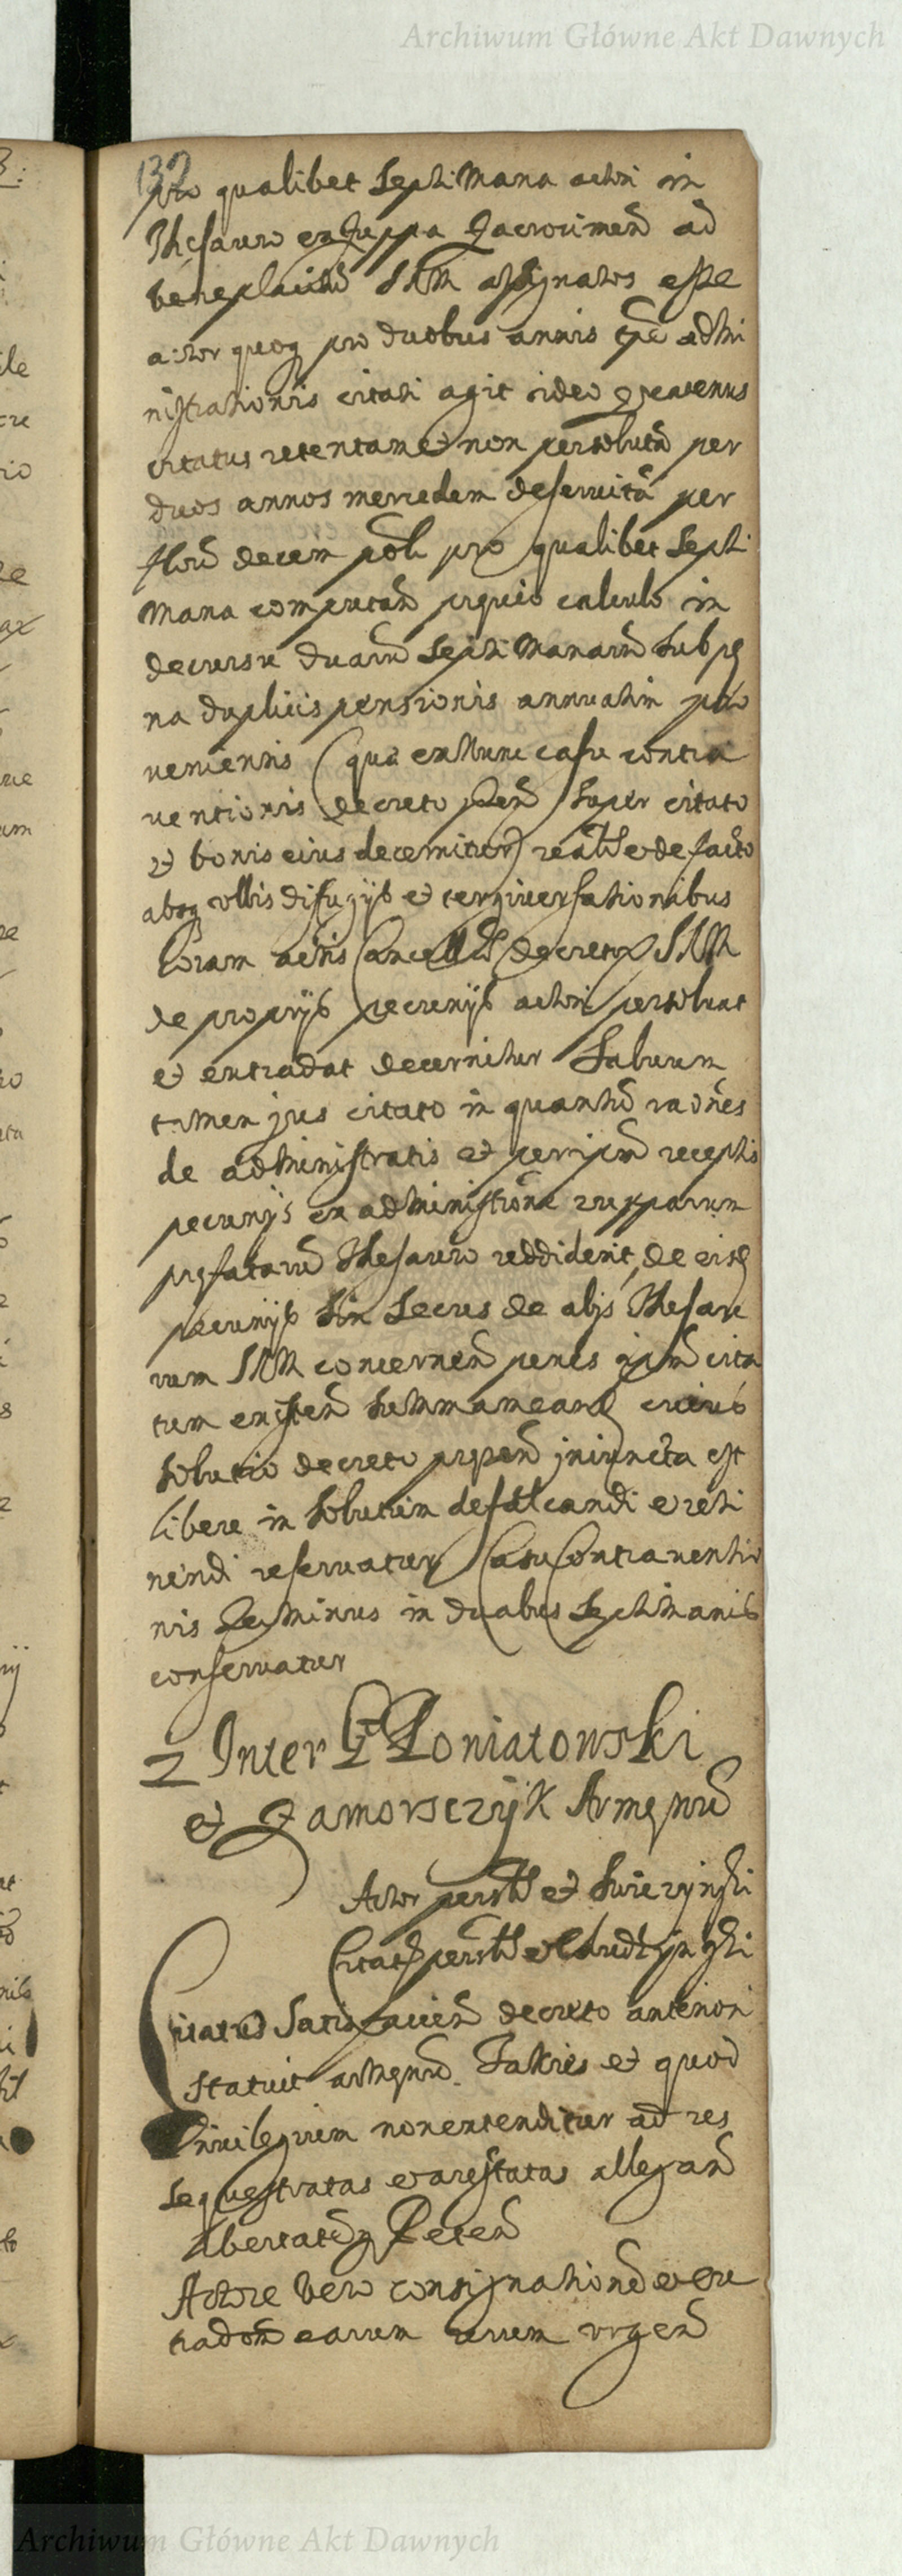 Archiwum Główne Akt Dawnych
132
pro qualibet Septimana actori in
Thesauro ex Zuppa Zacrocimen ad
beneplacitũ SRM assignatos esse
actor quoq pro duobus annis admi
nistrationis citati agit ideo quatenus
citatus retentam et non persolutã per
duos annos mercedem deseruitã per
flor decem pol pro qualibet Septi
mana computan calculo in
decursu duarũ Septimanarũ sub pę
na duplicis pensionis annuatim pro
uenientis (qua ex nunc casu contra
uentionis decreto super citato
et bonis eius decernitur) realr et de facto
absq ullis difugijs et tergiuersationibus
Coram actis Cancell decretor SRM
de proprijs pecunijs actori persoluat
et extradat decernitur Saluum
tamen jus citato in quantũ raões
de administratis et per ipsũ receptis
pecunijs ex administrone zupparum
pręfatarũ Thesauro reddiderit, de eisd
pecunijs siu secus de alijs Thesau
rum SRM concernen penes ipsũ cita
tum existen summam eand cuius
solutio decreto pręsen iniuncta est
libere in solutum defalcandi et reti
nendi reseruatur Casu Contrauentio
nis Terminus in duabus Septimanis
conseruatur
2 Inter G Poniatowski
et Zamorsczyk Armenũ
Actor personlr et Swiezynski
Citatus personlr et
Citatus Satisfacien decreto anteriori
statuit armenũ. Fassires et quod
Priuilegium non extenditur ad res
sequestratas et arestatas allegan
libertatẽq Peten
Actore vero consignationẽ et ex
tradonẽ earum rerum urgen
Archiwum Główne Akt Dawnych